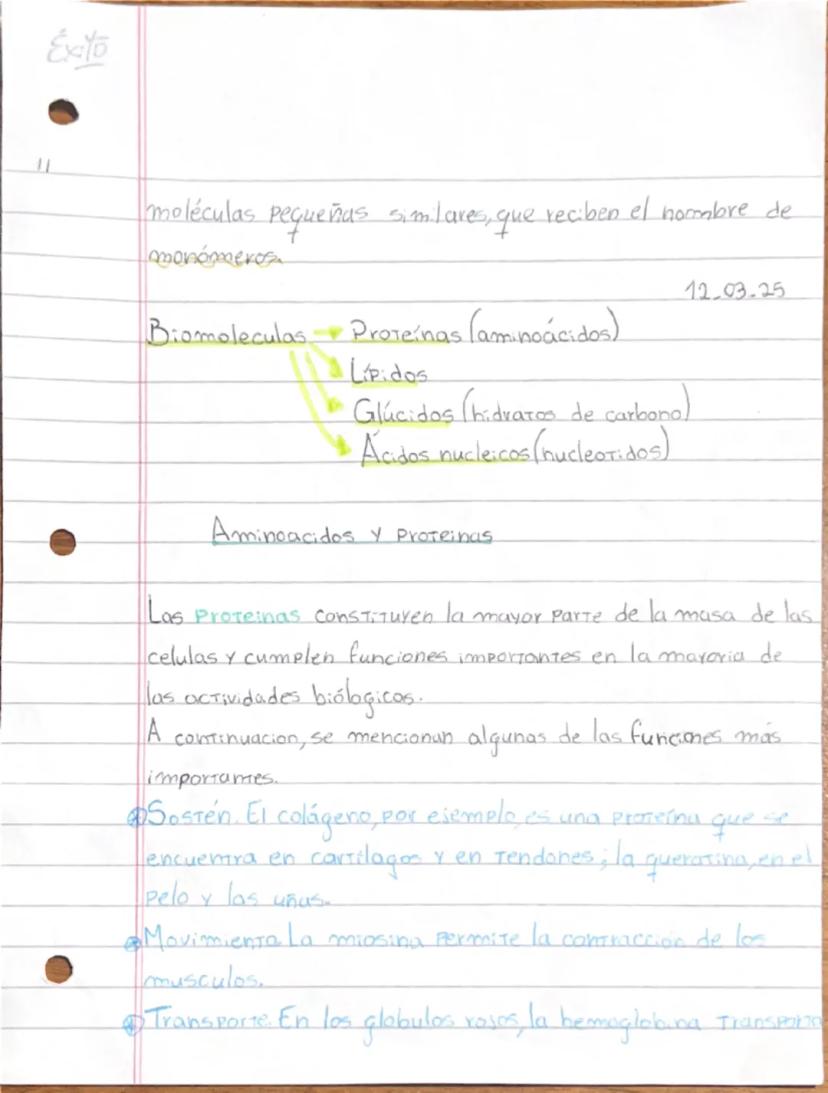 Éxito
11
moléculas pequeñas similares, que reciben el nombre de
monómeros.
12-03-25
Biomoleculas → Proteínas (aminoácidos)
Lípidos
Glúcidos (hidratos de carbono)
Ácidos nucleicos (nucleotidos)
Aminoacidos y proteinas
Las proteinas constituyen la mayor parte de la masa de las
celulas y cumplen funciones importantes en la mayoria de
las actividades biólogicas.
A continuacion, se mencionan algunas de las funciones más
importantes.
Sostén. El colágeno, por ejemplo, es una proteína que se
encuentra en cartílagos y en tendones; la queratina, en el
pelo y las uñas.
Movimiento. La miosina permite la contracción de los
musculos.
Transporte. En los globulos rojos, la hemoglobina transporta